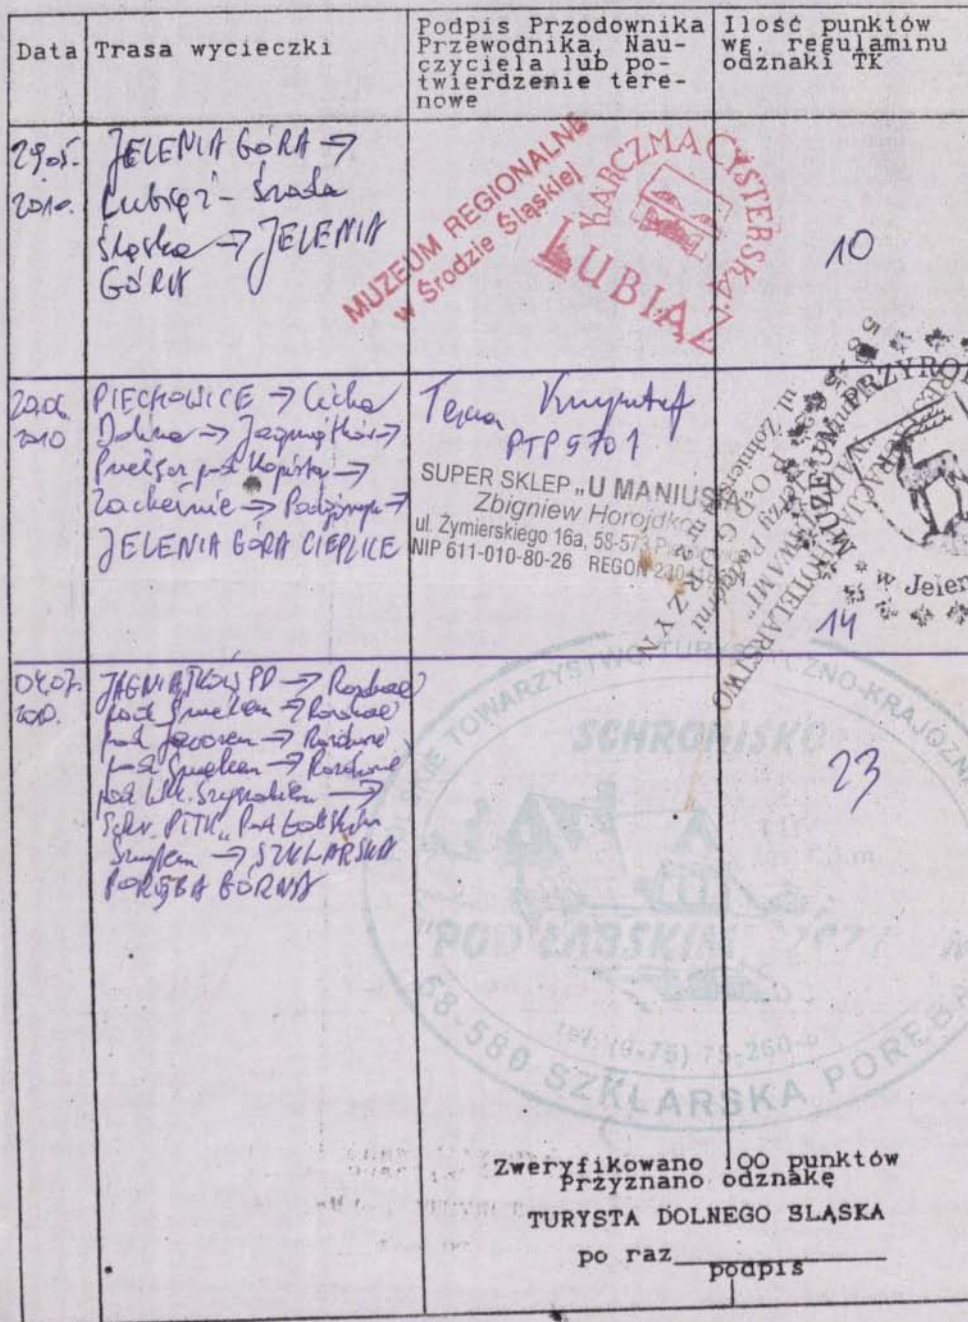 Data
Trasa wycieczki
Podpis Przodownika
Przewodnika, Nau-
czyciela lub po-
twierdzenie tere-
nowe
Ilość punktów
wg. regulaminu
odznaki TK
29.05.
2010.
JELENIA GÓRA →
Lubiąż - Środa
Śląska → JELENIA
GÓRA
MUZEUM REGIONALNE
w Środzie Śląskiej
KARCZMA CYSTERSKA
LUBIĄŻ
10
20.06.
2010
PIECHOWICE → Cicha
Dolina → Jagniątków →
pod Kopistą →
Zachełmie → Podgórzyn →
JELENIA GÓRA CIEPLICE
Krzysztof
PTP 5701
SUPER SKLEP „U MANIUSIA
Zbigniew Horojdko
ul. Żymierskiego 16a, 58-573
NIP 611-010-80-26 REGON
MUZEUM PRZYRO
w Jelen
14
04.07.
2010.
JAGNIĄTKÓW PD → Rozdroże
pod Śmielcem → Rozdroże
pod Jaworem → Rozdroże
pod Śmielcem → Rozdroże
pod Wlk. Szyszakiem →
Schr. PTTK „Pod Łabskim
Szczytem → SZKLARSKA
PORĘBA GÓRNA
23
TOWARZYSTWO TURYSTYCZNO-KRAJOZNA
SCHRONISKO
"POD ŁABSKIM
58-580 SZKLARSKA PORĘBA
Zweryfikowano 100 punktów
Przyznano odznakę
TURYSTA DOLNEGO SLĄSKA
po raz
podpis